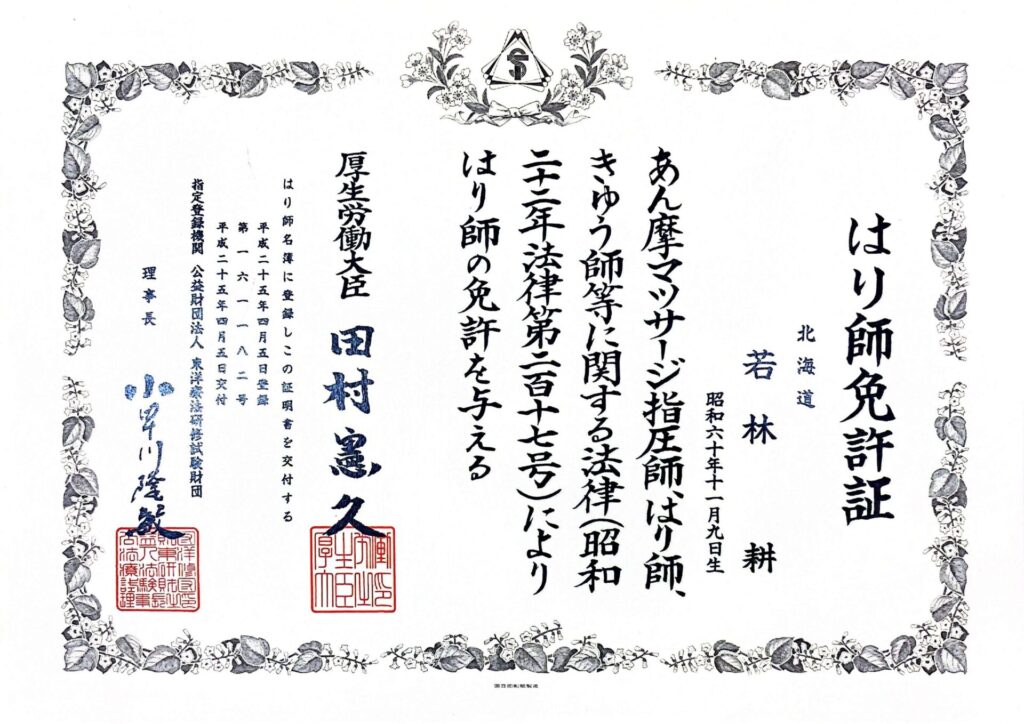 はり師免許証
北海道
若林　耕
昭和六十年十一月九日生
あん摩マツサージ指圧師、はり師、
きゆう師等に関する法律（昭和
二十二年法律第二百十七号）により
はり師の免許を与える
厚生労働大臣　田村憲久
はり師名簿に登録しこの証明書を交付する
平成二十五年四月五日登録
第一六一一八二号
平成二十五年四月五日交付
指定登録機関　公益財団法人　東洋療法研修試験財団
理事長　小早川隆敏